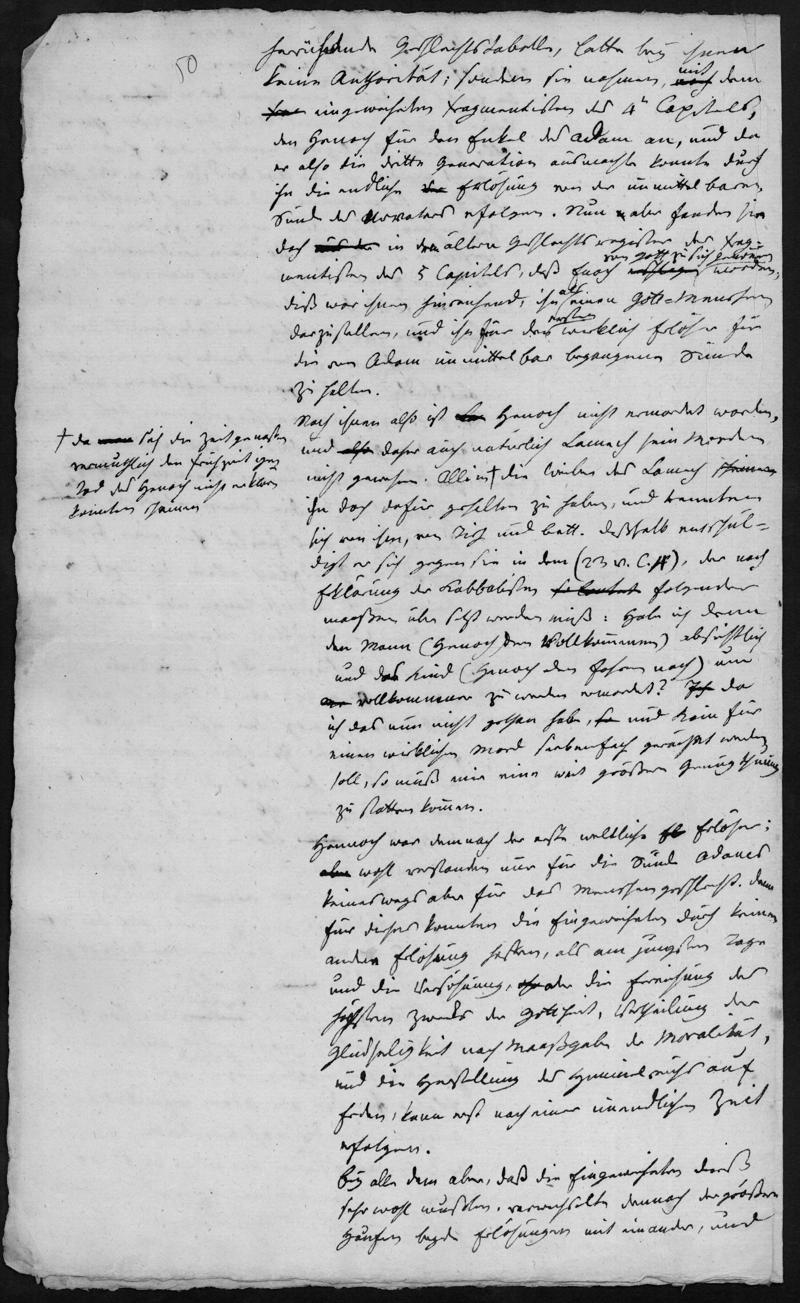 50
herrührende Geschlechtstabelle, hatte bey ihnen
keine Authorität; sondern sie nahmen, mit dem
eingeweihten Fragmentisten des 4n Capitels,
den Henoch für den Enkel des Adam an, und da
er also die dritte Generation ausmachte konnte durch
ihn die endliche Erlösung von der unmittelbaren
Sünde des Urvaters erfolgen. Nun aber fanden sie
doch in dem ältern Geschlechtsregister des Frag-
mentisten des 5 Capitels, daß Enoch von Gott zu sich genommen worden,
diß war ihnen hinreichend, ihn als einen Gott-Menschen
darzustellen, und ihn für den ersten wirklich Erlöser für
die von Adam unmittelbar begangene Sünde
zu halten.
Nach ihnen also ist Henoch nicht ermordet worden,
und daher auch natürlich Lamech sein Mörder
nicht gewesen. Allein † die Weiber des Lamech
ihn doch dafür gehalten zu haben, und trennten
sich von ihm, von Tisch und Bett. Deßhalb entschul-
digt er sich gegen sie in dem (23 v. C. 4), der nach
Erklärung der Kabbalisten folgender
maaßen übersetzt werden muß: Hab ich denn
den Mann (Henoch den Vollkommenen) absichtlich
und das Kind (Henoch den Jahren nach) um
vollkommener zu werden ermordet? da
ich das nun nicht gethan habe, und Kain für
einen wirklichen Mord siebenfach gerächt werden
soll, so muß mir eine weit größere Genugthuung
zu statten kommen.
† da sich die Zeitgenossen
vermuthlich den frühzeitigen
Tod des Henoch nicht erklären
konnten schienen
Hennoch war demnach der erste weltliche Erlöser;
wohl verstanden nur für die Sünde Adams
keineswegs aber für das Menschengeschlecht. denn
für dieses konnten die Eingeweihten durch keinen
andern Erlösung hoffen, als am jüngsten Tage
und die Versöhnung, oder die Erreichung des
höchsten Zwecks der Gottheit, Vertheilung der
Glückseligkeit nach Maaßgabe der Moralität,
und die Herstellung des Himmelreichs auf
Erden, kann erst nach einer unendlichen Zeit
erfolgen.
Bey alle dem aber, daß die Eingeweihten dieß
sehr wohl wußten, verwechselte dennoch der größere
Haufen beyde Erlösungen mit einander, und